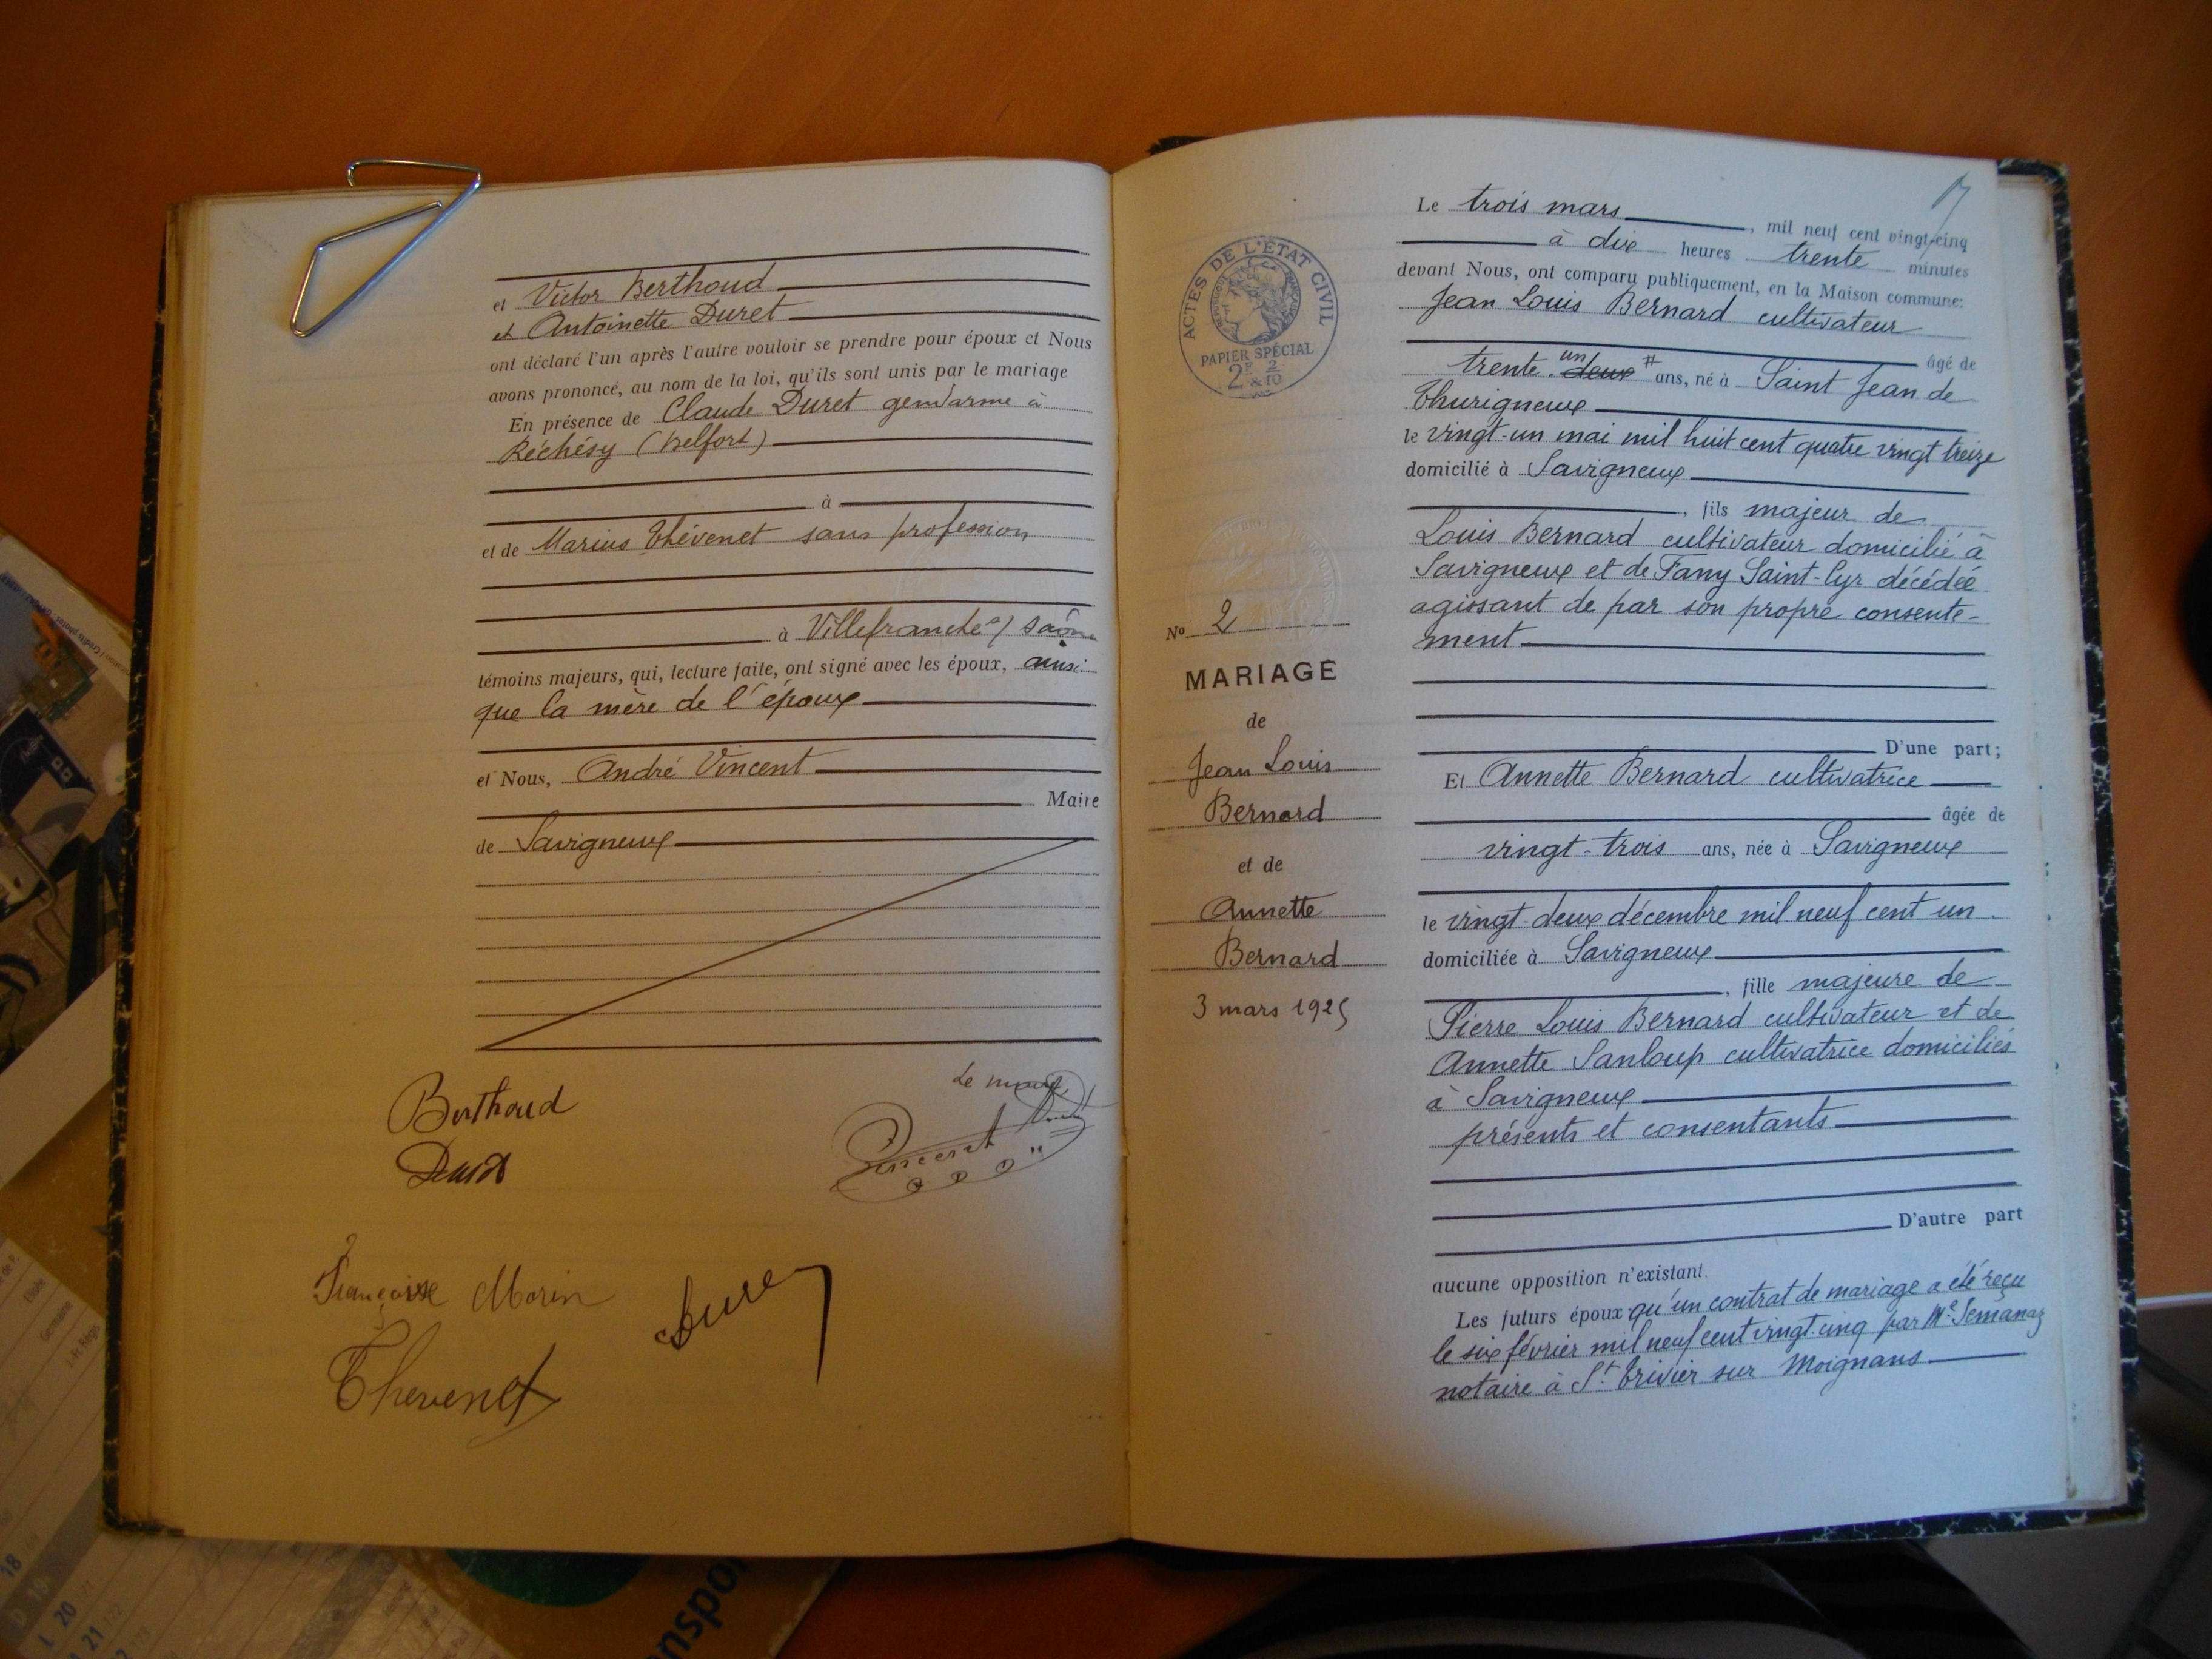 et Victor Berthoud
et Antoinette Duret
ont déclaré l'un après l'autre vouloir se prendre pour époux et Nous
avons prononcé, au nom de la loi, qu'ils sont unis par le mariage
En présence de Claude Duret gendarme à
Réchésy (Belfort)
à
et de Marius Thévenet sans profession
à Villefranche s/ saône
témoins majeurs, qui, lecture faite, ont signé avec les époux, ainsi
que la mère de l'époux
et Nous, André Vincent
Maire
de Savigneux
Le maire
Berthoud
Vincent
Duret
Françoise Morin
Duret
Thevenet
ACTES DE L'ETAT CIVIL
PAPIER SPÉCIAL
2F 2
&10
No 2
MARIAGE
de
Jean Louis
Bernard
et de
Annette
Bernard
3 mars 1925
17
Le trois mars, mil neuf cent vingt-cinq
à dix heures trente minutes
devant Nous, ont comparu publiquement, en la Maison commune:
Jean Louis Bernard cultivateur
âgé de
trente deux un # ans, né à Saint Jean de
Thurigneux
le vingt-un mai mil huit cent quatre vingt treize
domicilié à Savigneux
, fils majeur de
Louis Bernard cultivateur domicilié à
Savigneux et de Fany Saint-Cyr décédée
agissant de par son propre consente-
ment
D'une part;
Et Annette Bernard cultivatrice
âgée de
vingt-trois ans, née à Savigneux
le vingt-deux décembre mil neuf cent un
domiciliée à Savigneux
, fille majeure de
Pierre Louis Bernard cultivateur et de
Annette Sanloup cultivatrice domiciliés
à Savigneux
présents et consentants
D'autre part
aucune opposition n'existant.
Les futurs époux qu'un contrat de mariage a été reçu
le six février mil neuf cent vingt-cinq par Me Semanaz
notaire à St Trivier sur Moignans